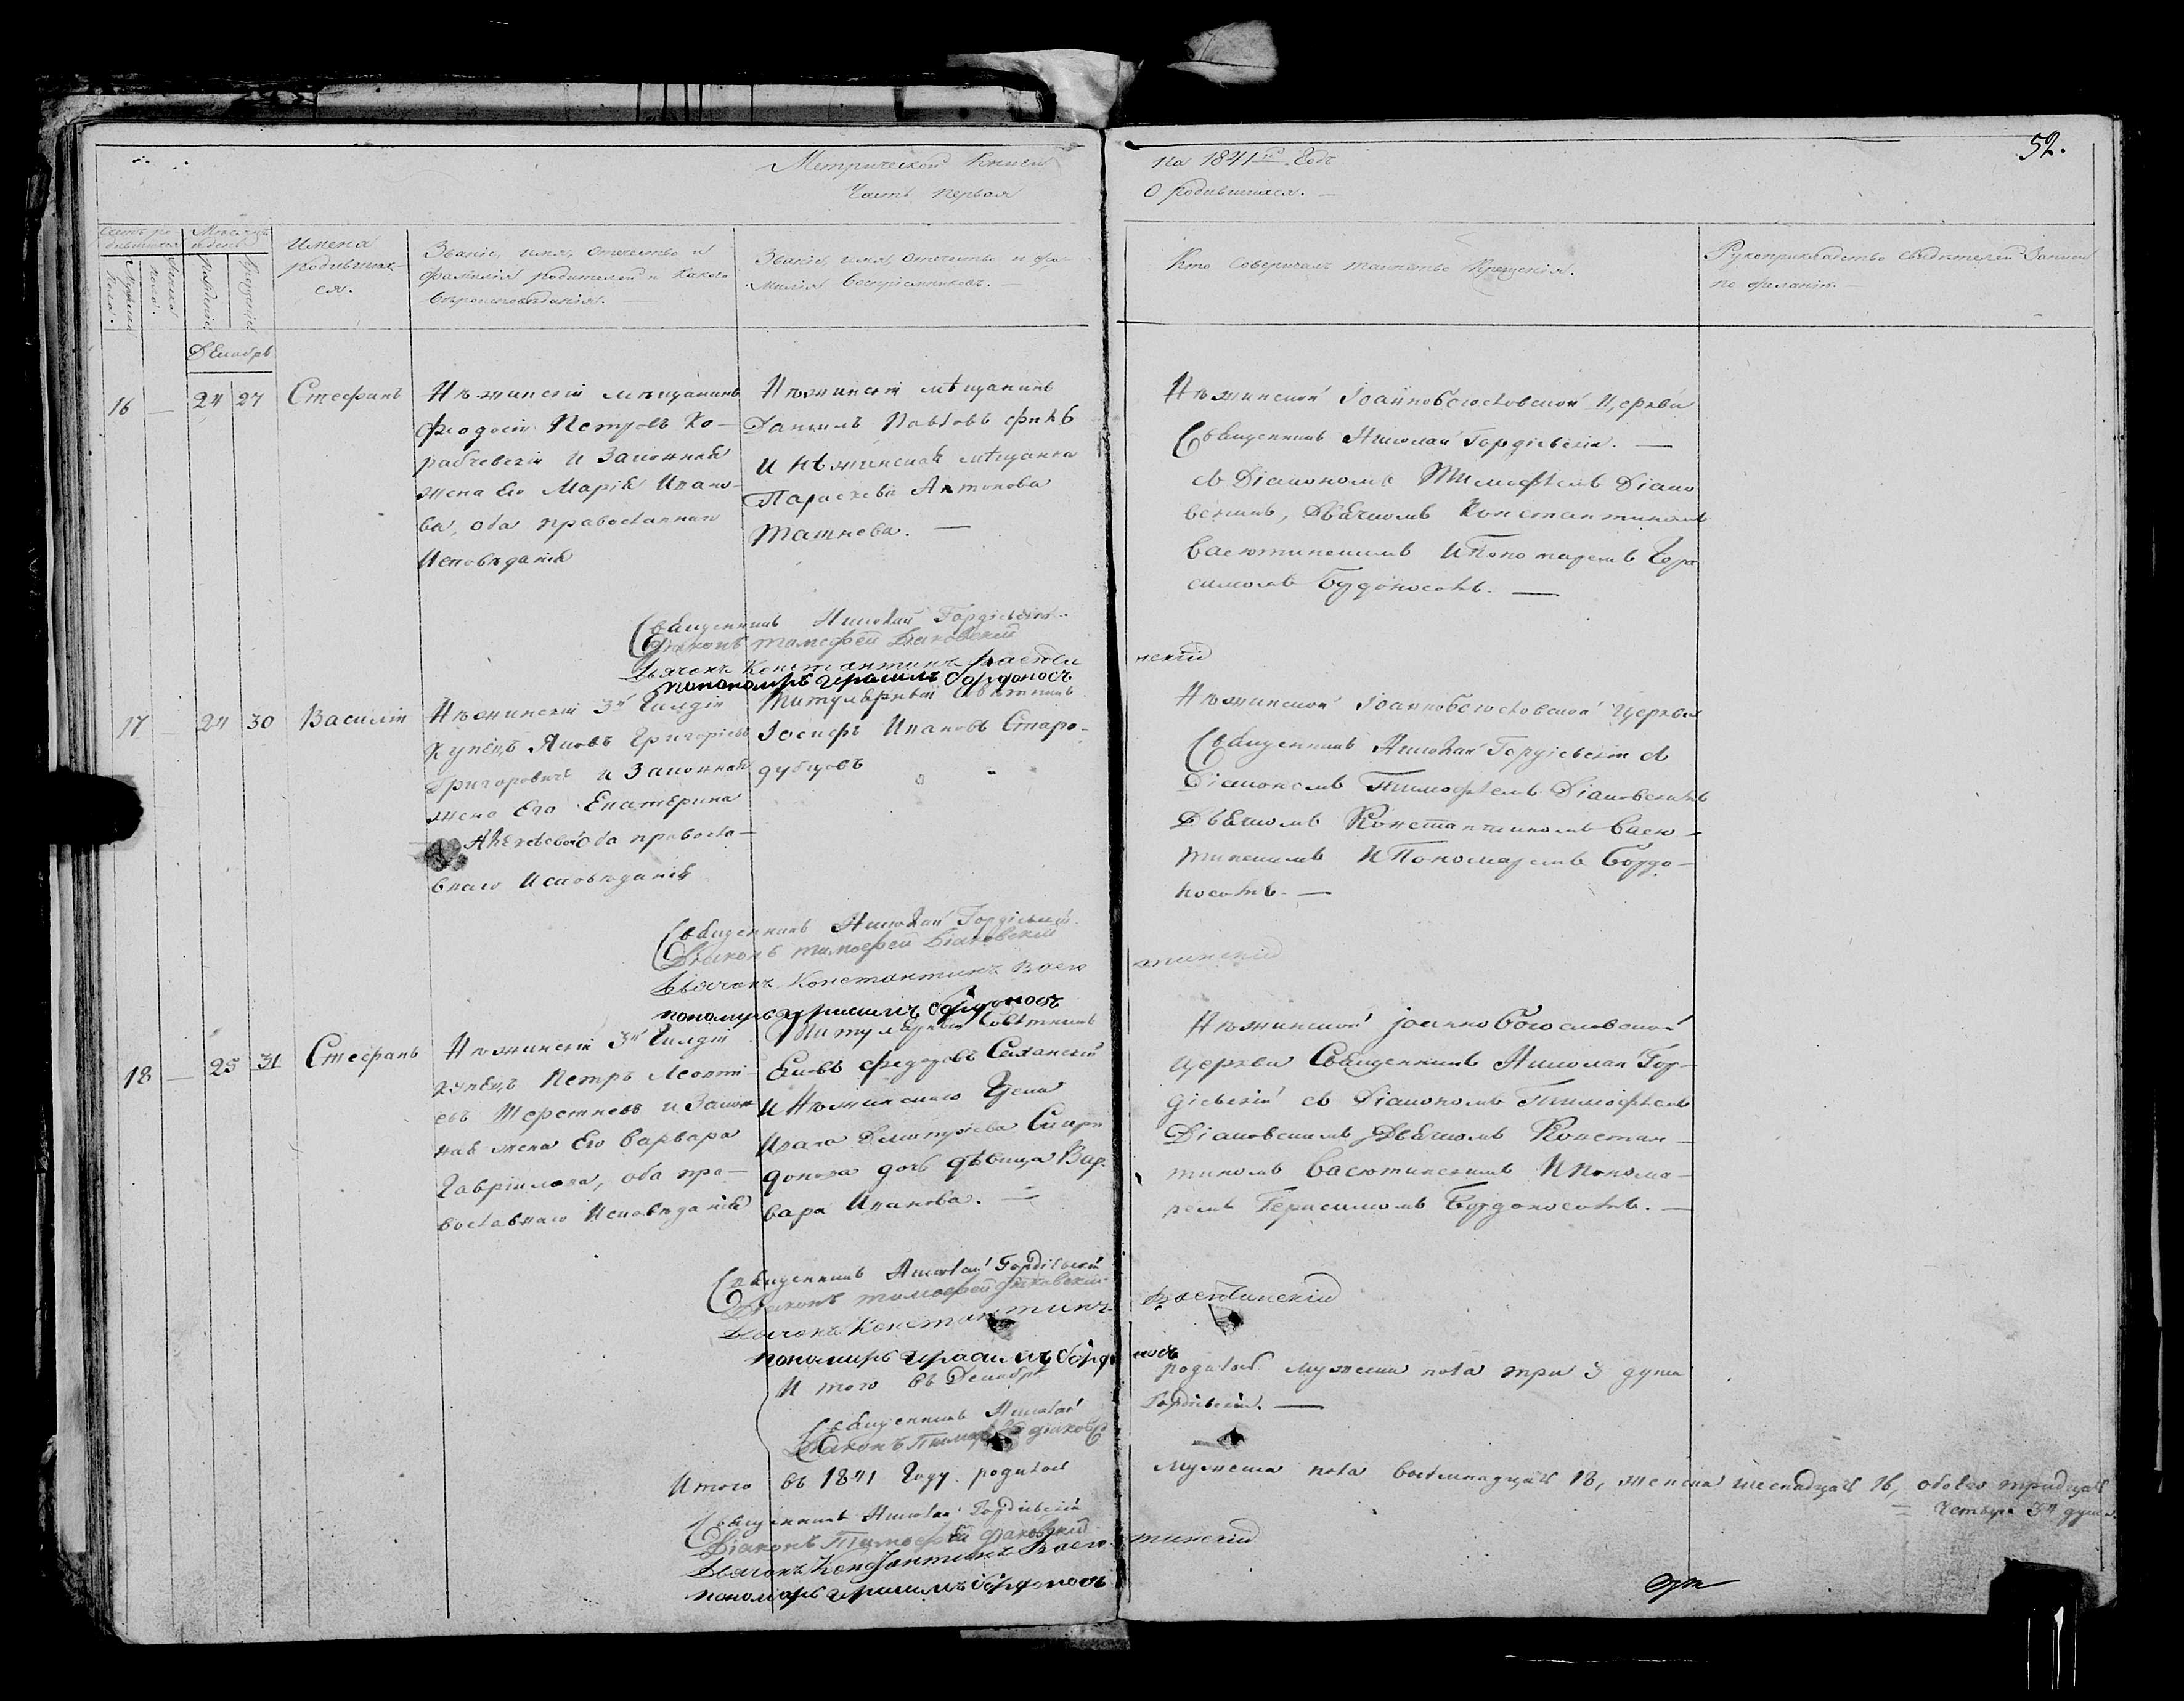 52.
Метрической Книги на 1841й Годъ
Часть первая О родившихся. —
Счетъ родившихся
Мужеска пола.
Женска пола.
Месяцъ и день
рожденія
Крещенія
Имена родившихся.
Званіе, имя, отечество и
фамилія родителей и какого
вероисповѣданія. —
Званіе, имя, отечество и фамилія
воспріемниковъ. —
Кто совершалъ таинство крещенія.
Рукоприкладство свидѣтелей записи
по желанію. —
Декабрь
16 — 24 27 Стефанъ
Нѣжинскій мѣщанинъ
Феодосій Петровъ Ко-
рабчевскій и Законная
жена Его Марія Ивано-
ва, оба православнаго
Исповѣданія
Нѣжинскій мѣщанинъ
Даніилъ Павловъ
и нѣжинская мѣщанка
Параскева Антонова
Нѣжинской Іоаннобогословской Церкви
Священникъ Николай Гордіевскій. —
съ Діакономъ Тимофѣемъ Діаков
скимъ, Дьячкомъ Константиномъ
Васютинскимъ и Пономаремъ Гера
симомъ Бордоносомъ. —
Священникъ Николай Гордіевскій.
Діаконъ тимофей Діаковскій
Дьячокъ Константинъ Васюти
нскій
пономарь герасимъ бордоносъ
17 — 24 30 Василій
Нѣжинскій 3й Гилдіи
Купецъ Яковъ Григоріевъ
Григоровичъ и Законная
жена Его Екатерина
Алексѣева оба правосла-
внаго Исповѣданія
Титулярный Совѣтникъ
Іосифъ Ивановъ Старо-
дубцовъ
Нѣжинской Іоаннобогословской Церкви
Священникъ Николай Гордіевскій съ
Діакономъ Тимофѣемъ Діаковскимъ
Дьячкомъ Константиномъ Васю-
тинскимъ и Пономаремъ Бордо-
носомъ. —
Священникъ Николай Гордіевскій.
Діаконъ тимофей Діаковскій
Дьячокъ Константинъ Васю
тинскій
пономарь герасимъ бордоносъ
18 — 25 31 Стефанъ
Нѣжинскій 3й Гилдіи
купецъ Петръ Леонті-
евъ и Закон
ная жена Его Варвара
Гавріилова, оба пра-
вославнаго Исповѣданія
Титулярный Совѣтникъ
Федоровъ
и Нѣжинскаго
Ивана Дмитріева Спири
донова дочь дѣвица Вар-
вара Иванова. —
Нѣжинской Іоаннобогословской
Церкви Священникъ Николай Гор-
діевскій съ Діакономъ Тимофѣемъ
Діаковскимъ, Дьячкомъ Констан-
тиномъ Васютинскимъ и Понома-
ремъ Герасимомъ Бордоносомъ. —
Священникъ Николай Гордіевскій
Діаконъ тимофей Діаковскій
Дьячокъ Константинъ Васютинскій
пономарь герасимъ бордоносъ
И того въ Декабрѣ родилось мужеска пола три 3 души
Священникъ Николай Гордіевскій. —
Діаконъ Тимофей Діаковск
Итого въ 1841 Году родилось мужеска пола восемнадцать 18, женска шеснадцать 16, обоего тридцать
четыре 34 души
Священникъ Николай Гордіевскій
Діаконъ Тимофей Діаковскій
Дьячокъ Константинъ Васютинскій
пономарь герасимъ бордоносъ